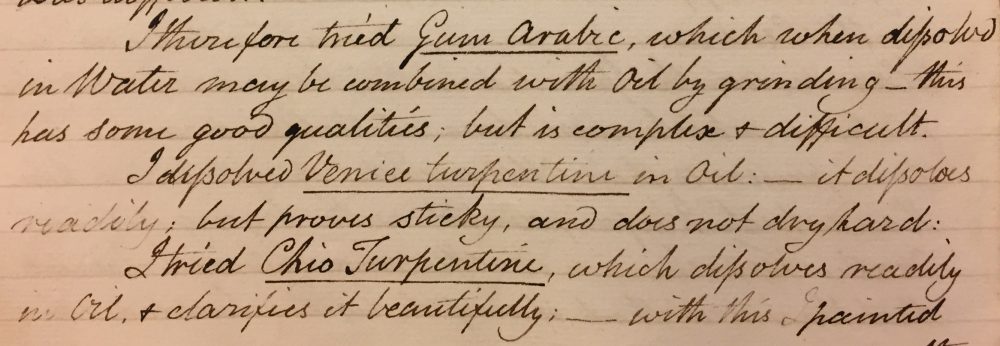 I therefore tried Gum Arabic, which when dissolved
in Water may be combined with Oil by grinding – this
has some good qualities; but is complex & difficult.
I dissolved Venice turpentine in Oil: — it dissolves
readily; but proves sticky, and does not dry hard:
I tried Chio Turpentine, which dissolves readily
in Oil, & clarifies it beautifully; — with this I painted